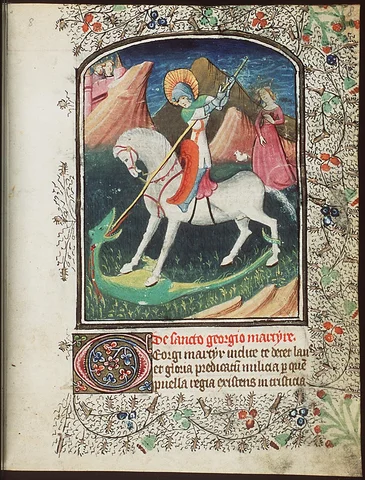 De sancto georgio martyre.
Georgi martyr inclite te decet laus
et gloria predicata milicia p que
puella regia existens in tristicia